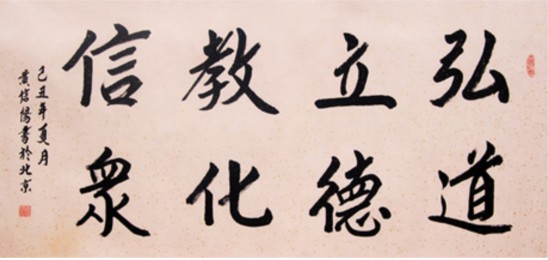 弘道
立德
教化
信眾
己丑年夏月
黄信儒書於北京